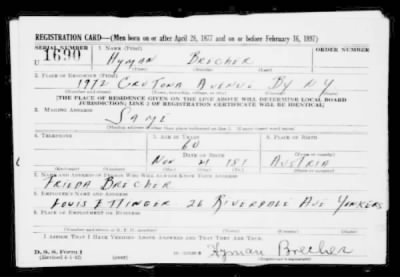 REGISTRATION CARD—(Men born on or after April 28, 1877 and on or before February 16, 1897)
SERIAL NUMBER 1. NAME (Print) ORDER NUMBER
U 1690 HYMAN BRECHER
(First) (Middle) (Last)
2. PLACE OF RESIDENCE (Print)
1972 CROTONA AVENUE BX NY
[THE PLACE OF RESIDENCE GIVEN ON THE LINE ABOVE WILL DETERMINE LOCAL BOARD
JURISDICTION; LINE 2 OF REGISTRATION CERTIFICATE WILL BE IDENTICAL]
3. MAILING ADDRESS
SAME
[Mailing address if other than place indicated on line 2. If same insert word same]
4. TELEPHONE 5. AGE IN YEARS 6. PLACE OF BIRTH
60
DATE OF BIRTH
NOV 21 181 AUSTRIA
(Exchange) (Number) (Mo.) (Day) (Yr.) (State or country)
7. NAME AND ADDRESS OF PERSON WHO WILL ALWAYS KNOW YOUR ADDRESS
FRIEDA BRECHER
8. EMPLOYER'S NAME AND ADDRESS
LOUIS 26 RIVERDALE AVE YONKERS
9. PLACE OF EMPLOYMENT OR BUSINESS
I AFFIRM THAT I HAVE VERIFIED ABOVE ANSWERS AND THAT THEY ARE TRUE.
D. S. S. Form 1
(Revised 4-1-42) Hyman Brecher